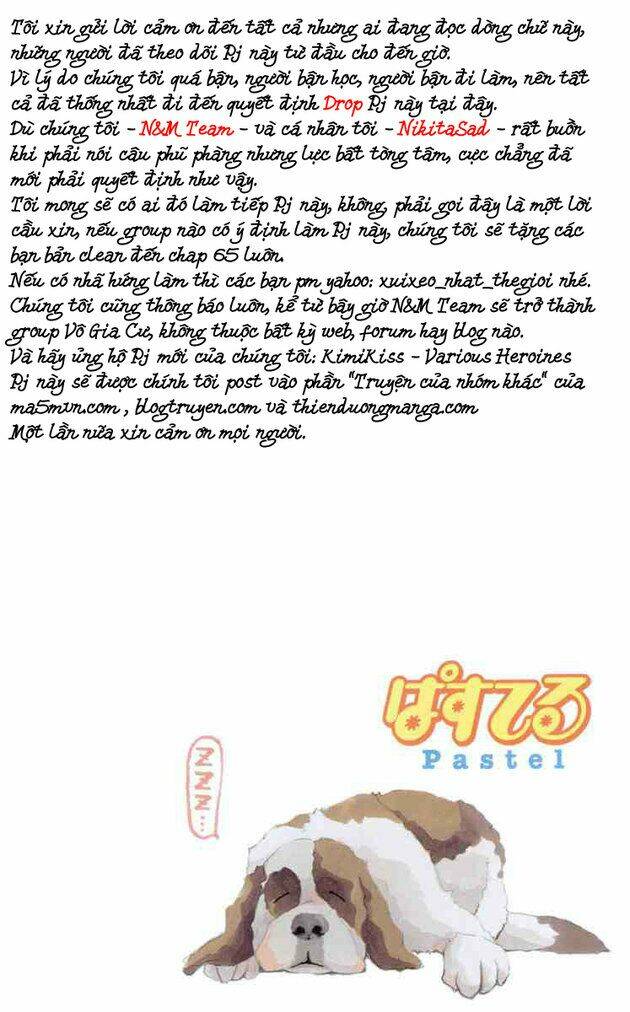 Tôi xin gửi lời cảm ơn đến tất cả nhưng ai đang đọc dòng chữ này,
những người đã theo dõi Pj này từ đầu cho đến giờ.
Vì lý do chúng tôi quá bận, người bận học, người bận đi làm, nên tất
cả đã thống nhất đi đến quyết định Drop Pj này tại đây.
Dù chúng tôi - N&M Team - và cá nhân tôi - NikitaSad - rất buồn
khi phải nói câu phũ phàng nhưng lực bất tòng tâm, cực chẳng đã
mới phải quyết định như vậy.
Tôi mong sẽ có ai đó làm tiếp Pj này, không, phải gọi đây là một lời
cầu xin, nếu group nào có ý định làm Pj này, chúng tôi sẽ tặng các
bạn bản clean đến chap 65 luôn.
Nếu có nhã hứng làm thì các bạn pm yahoo: xuixeo_nhat_thegioi nhé.
Chúng tôi cũng thông báo luôn, kể từ bây giờ N&M Team sẽ trở thành
group Vô Gia Cư, không thuộc bất kỳ web, forum hay blog nào.
Và hãy ủng hộ Pj mới của chúng tôi: KimiKiss - Various Heroines
Pj này sẽ được chính tôi post vào phần "Truyện của nhóm khác" của
ma5mvn.com , blogtruyen.com và thienduongmanga.com
Một lần nữa xin cảm ơn mọi người.
ぱすてる
Pastel
ZZZ...